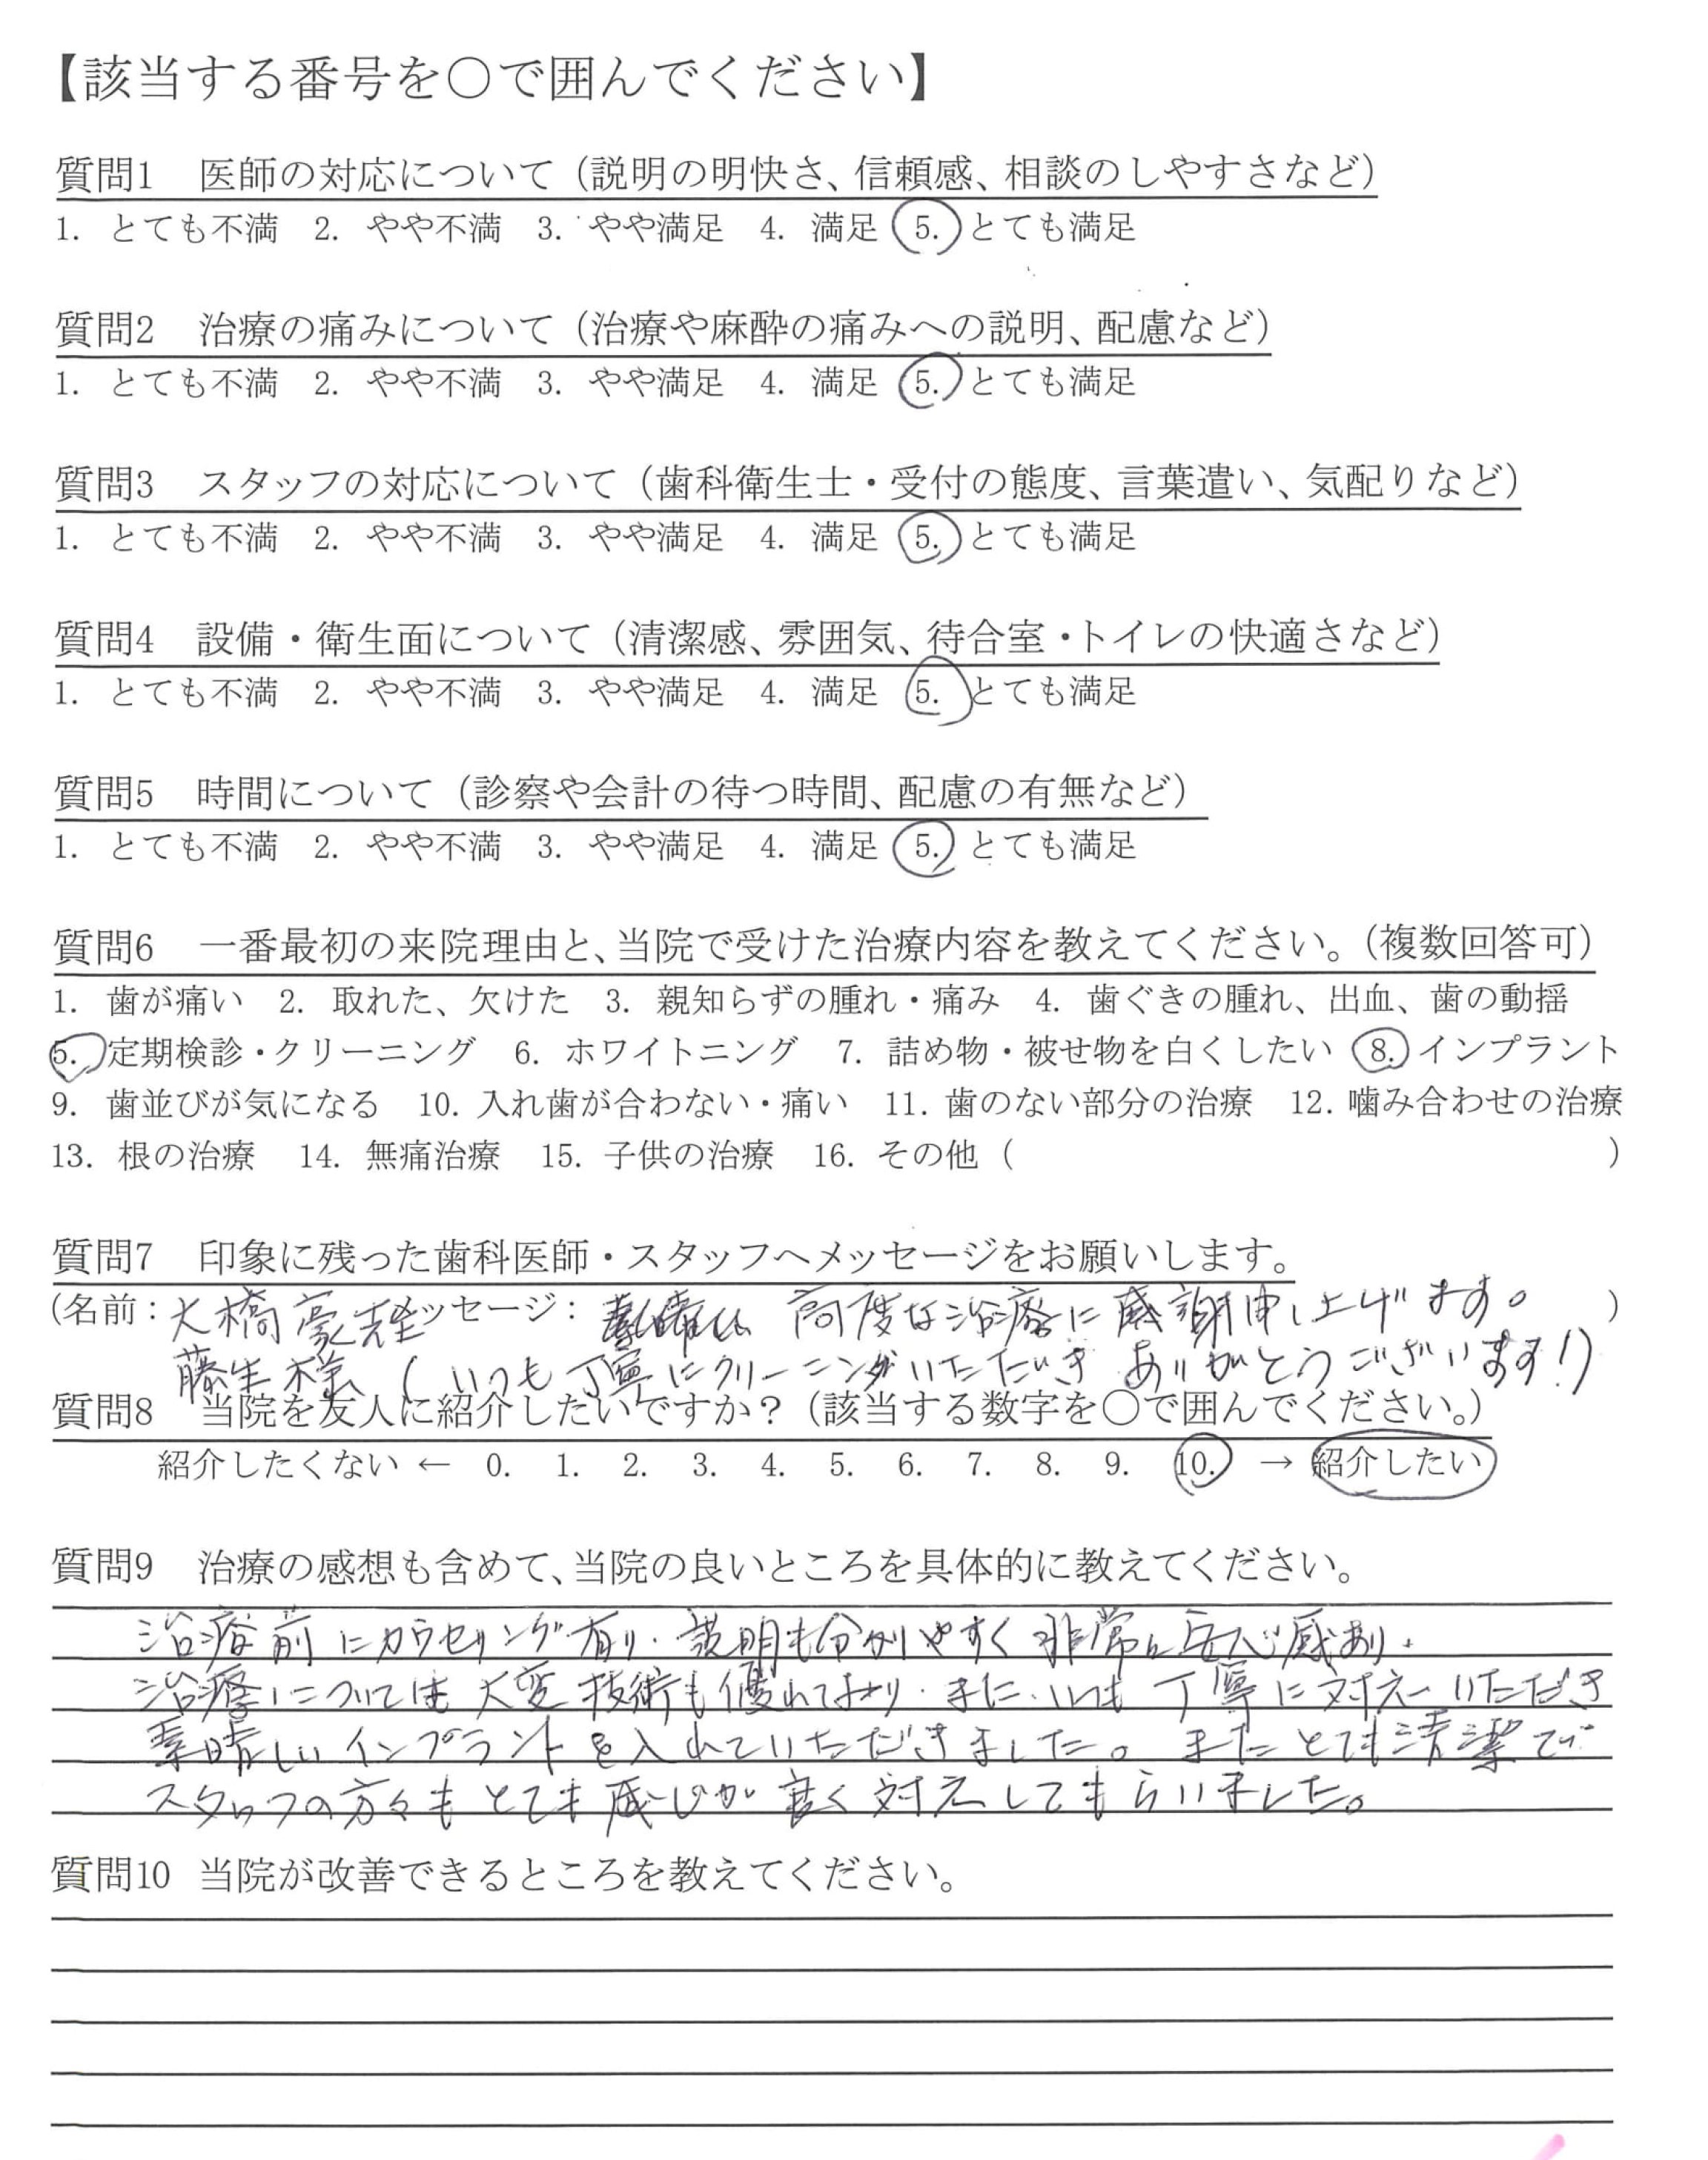 【該当する番号を○で囲んでください】
質問1　医師の対応について（説明の明快さ、信頼感、相談のしやすさなど）
1. とても不満　2. やや不満　3. やや満足　4. 満足　5. とても満足
質問2　治療の痛みについて（治療や麻酔の痛みへの説明、配慮など）
1. とても不満　2. やや不満　3. やや満足　4. 満足　5. とても満足
質問3　スタッフの対応について（歯科衛生士・受付の態度、言葉遣い、気配りなど）
1. とても不満　2. やや不満　3. やや満足　4. 満足　5. とても満足
質問4　設備・衛生面について（清潔感、雰囲気、待合室・トイレの快適さなど）
1. とても不満　2. やや不満　3. やや満足　4. 満足　5. とても満足
質問5　時間について（診察や会計の待つ時間、配慮の有無など）
1. とても不満　2. やや不満　3. やや満足　4. 満足　5. とても満足
質問6　一番最初の来院理由と、当院で受けた治療内容を教えてください。（複数回答可）
1. 歯が痛い　2. 取れた、欠けた　3. 親知らずの腫れ・痛み　4. 歯ぐきの腫れ、出血、歯の動揺
5. 定期検診・クリーニング　6. ホワイトニング　7. 詰め物・被せ物を白くしたい　8. インプラント
9. 歯並びが気になる　10. 入れ歯が合わない・痛い　11. 歯のない部分の治療　12. 噛み合わせの治療
13. 根の治療　14. 無痛治療　15. 子供の治療　16. その他（　）
質問7　印象に残った歯科医師・スタッフへメッセージをお願いします。
（名前：大橋豪先生 メッセージ： 高度な治療に感謝申し上げます。）
藤生様（いつも丁寧にクリーニングいただき ありがとうございます！）
質問8　当院を友人に紹介したいですか？（該当する数字を○で囲んでください。）
紹介したくない ← 0. 1. 2. 3. 4. 5. 6. 7. 8. 9. 10. → 紹介したい
質問9　治療の感想も含めて、当院の良いところを具体的に教えてください。
治療前にカウセリング有り、説明も分かりやすく非常に安心感あり、
治療については大変技術も優れており、また、いつも丁寧に対応いただき
素晴しいインプラントを入れていただきました。またとても清潔で
スタッフの方々もとても感じが良く対応してもらいました。
質問10　当院が改善できるところを教えてください。